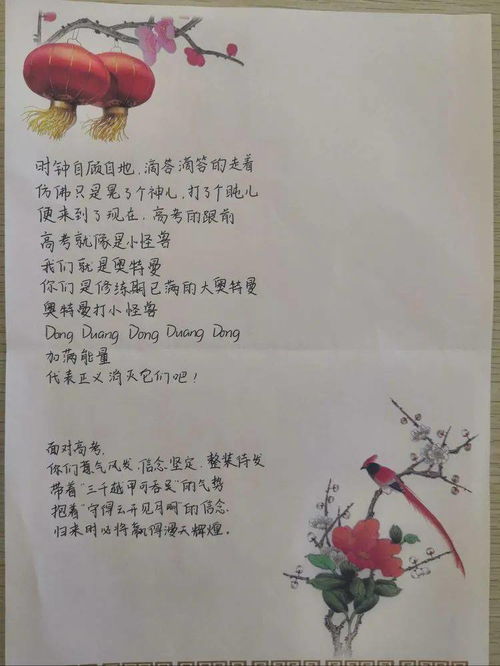 时钟自顾自地，滴答滴答的走着
仿佛只是晃了个神儿，打了个盹儿
便来到了现在，高考的跟前
高考就像是小怪兽
我们就是奥特曼
你们是修练期已满的大奥特曼
奥特曼打小怪兽
Dong Duang Dong Duang Dong
加满能量
代表正义消灭它们吧！
面对高考，
你们意气风发、信念坚定、整装待发
带着“三千越甲可吞吴”的气势
抱着“守得云开见月明”的信念
归来时必将赢得漫天辉煌。